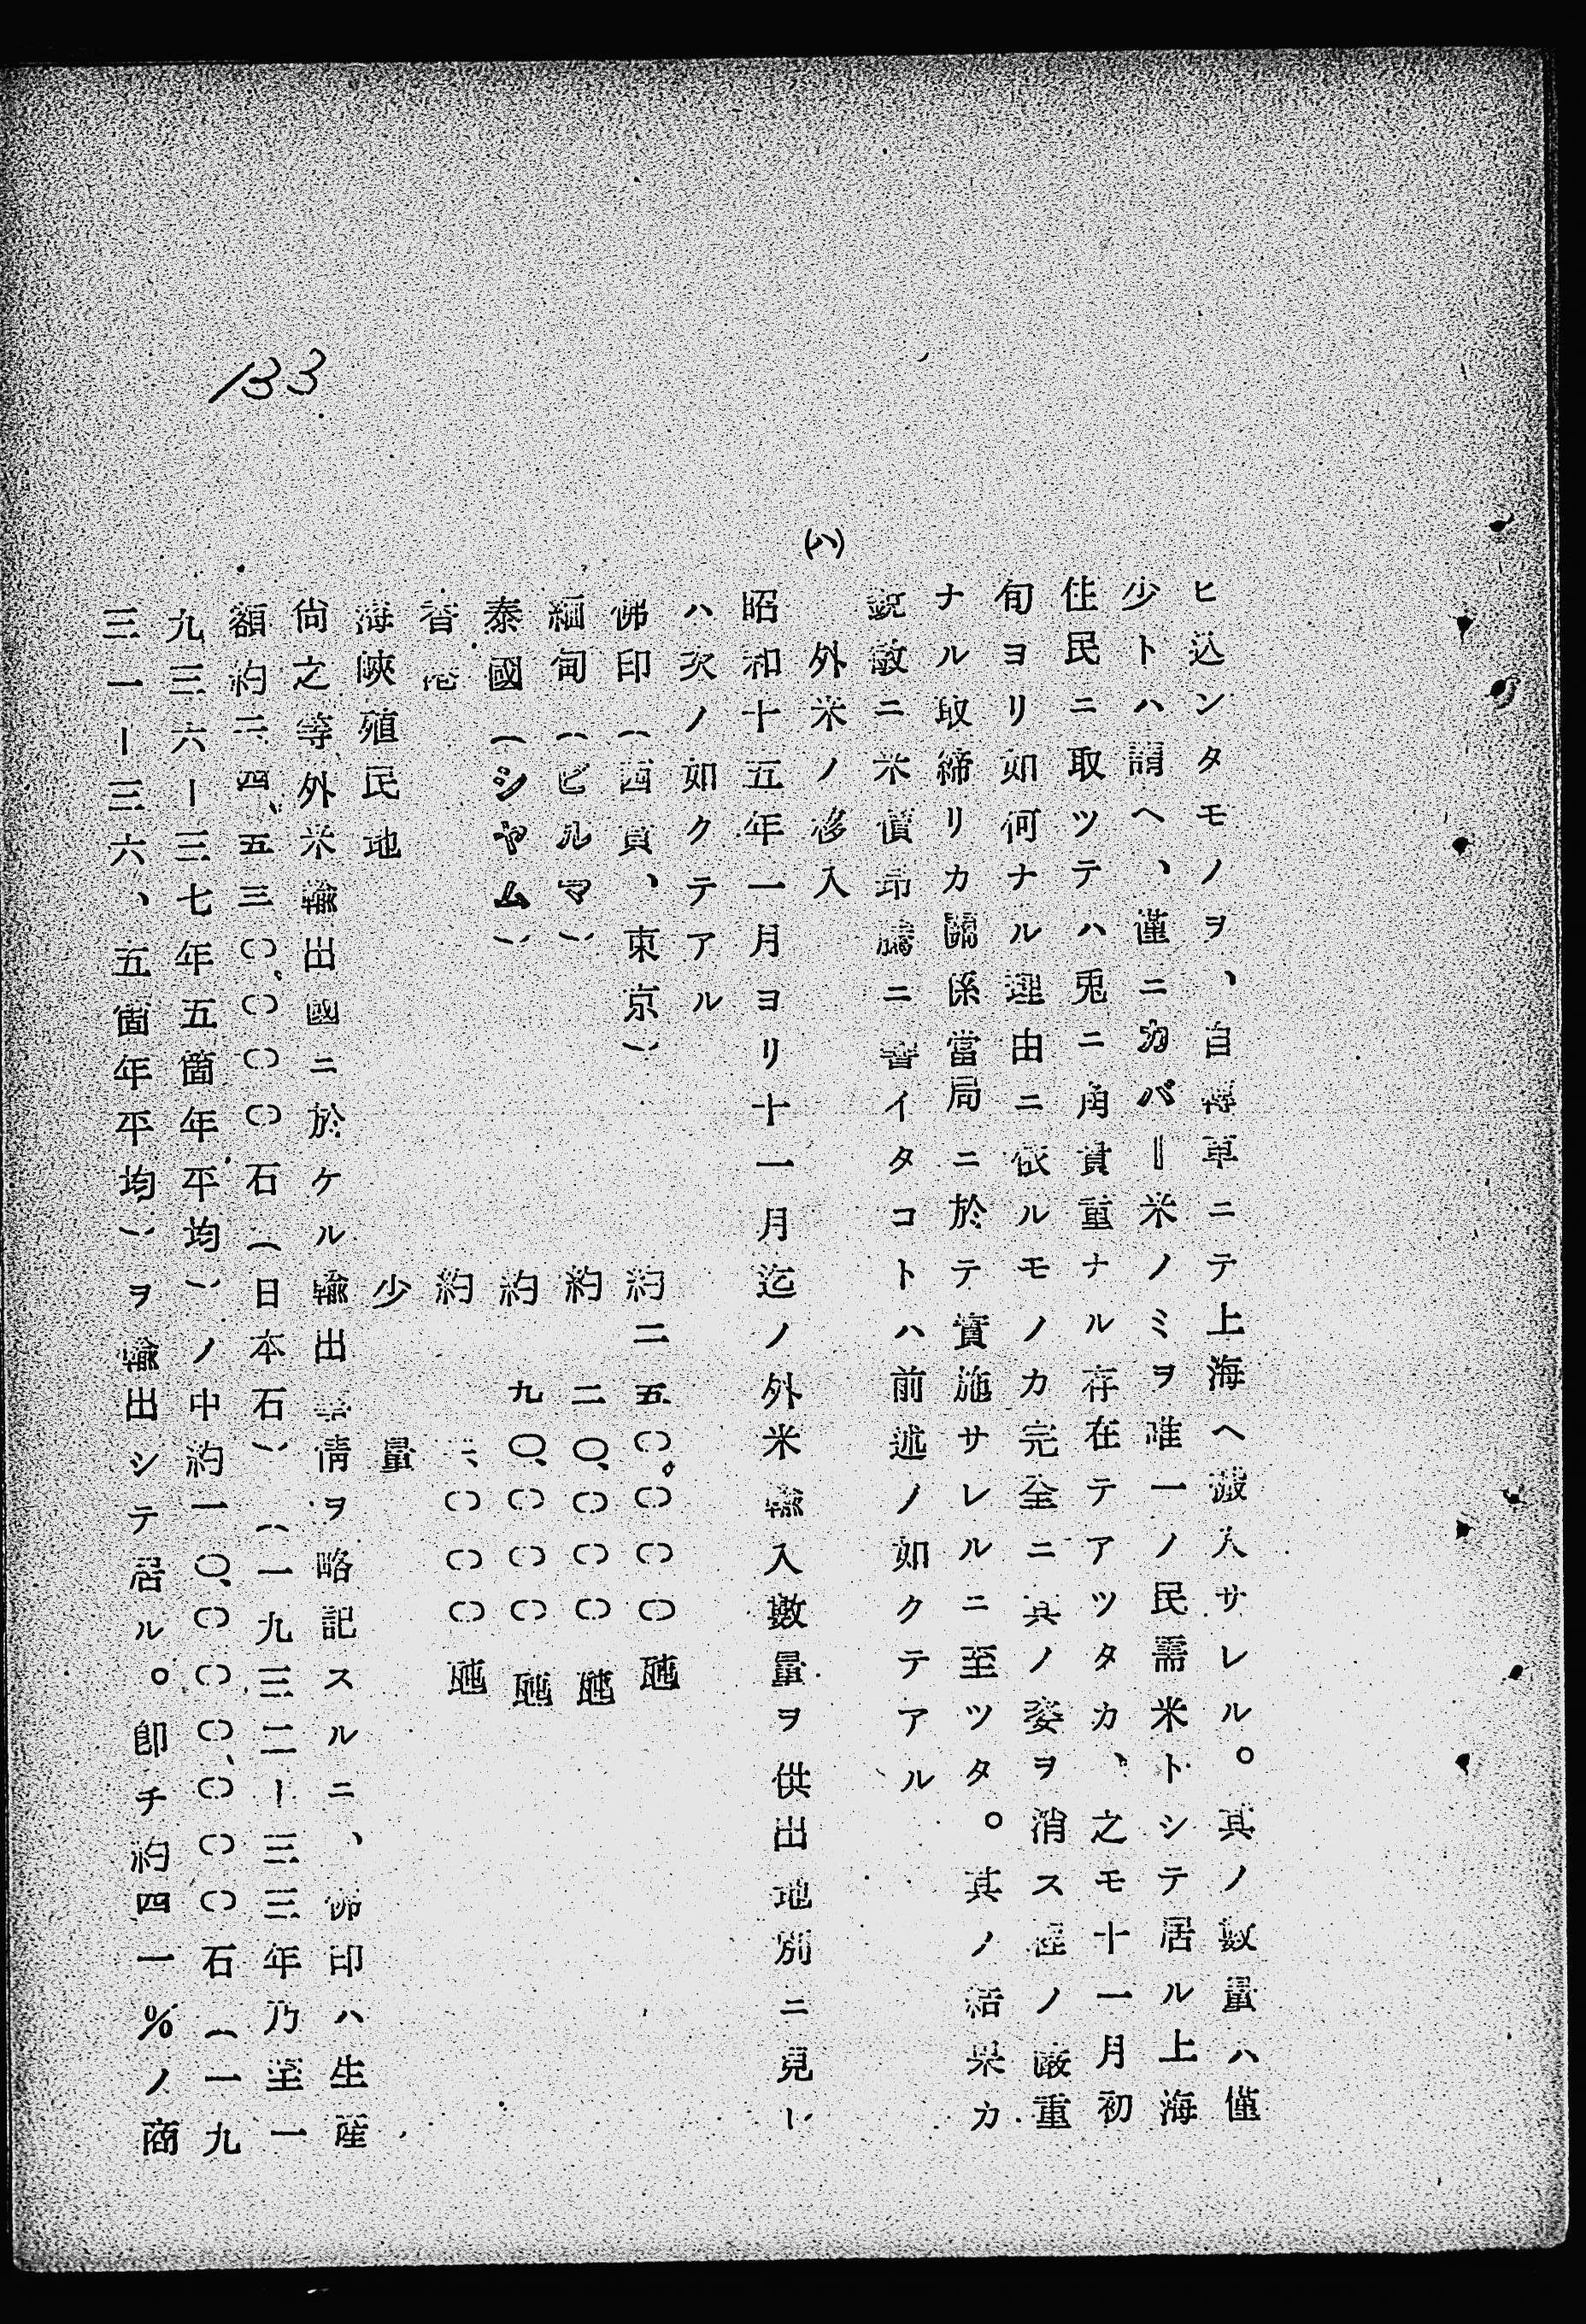 133
ヒ込ンタモノヲ、自轉車ニテ上海ヘ搬入サレル。其ノ數量ハ僅
少トハ謂ヘ、僅ニカバー米ノミヲ唯一ノ民需米トシテ居ル上海
住民ニ取ツテハ兎ニ角貴重ナル存在テアツタカ、之モ十一月初
旬ヨリ如何ナル理由ニ依ルモノカ完全ニ其ノ姿ヲ消ス程ノ嚴重
ナル取締リカ關係當局ニ於テ實施サレルニ至ツタ。其ノ結果カ
鋭敏ニ米價昂騰ニ響イタコトハ前述ノ如クテアル
(ハ) 外米ノ移入
昭和十五年一月ヨリ十一月迄ノ外米輸入數量ヲ供出地別ニ見レ
ハ次ノ如クテアル
佛印(西貢、東京) 約二五〇、〇〇〇瓲
緬甸(ビルマ) 約二〇、〇〇〇瓲
泰國(シヤム) 約九〇、〇〇〇瓲
香港 約 、〇〇〇瓲
海峽殖民地 少量
尙之等外米輸出國ニ於ケル輸出事情ヲ略記スルニ、佛印ハ生産
額約二四、五三〇、〇〇〇石(日本石)(一九三二ー三三年乃至一
九三六ー三七年五箇年平均)ノ中約一〇、〇〇〇、〇〇〇石(一九
三一ー三六、五箇年平均)ヲ輸出シテ居ル。卽チ約四一%ノ商